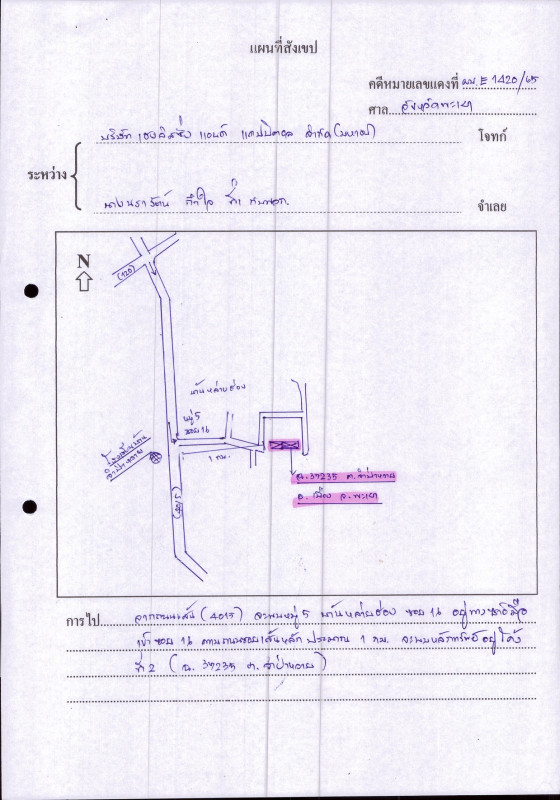 แผนที่สังเขป
คดีหมายเลขแดงที่ ผบ.E 1420/65
ศาล จังหวัดพะเยา
บริษัท เฮงลิสซิ่ง แอนด์ แคปปิตอล จำกัด (มหาชน) โจทก์
ระหว่าง
นางนรารัตน์ จำเลย
N
(120)
บ้านหล่ายฮ่อง
หมู่ 5
ซอย 16
1 กม.
ฉ. 37235 ต. จำป่าหวาย
อ. เมือง จ. พะเยา
การไป จากถนนเส้น (4015) จะพบหมู่ 5 บ้านหล่ายฮ่อง ซอย 16 อยู่ทางซ้ายมือ
เข้าซอย 16 ตามถนนซอยเส้นหลัก ประมาณ 1 กม. จะพบหลักทรัพย์อยู่โค้ง
ที่ 2 (ฉ. 37235 ต. จำป่าหวาย)